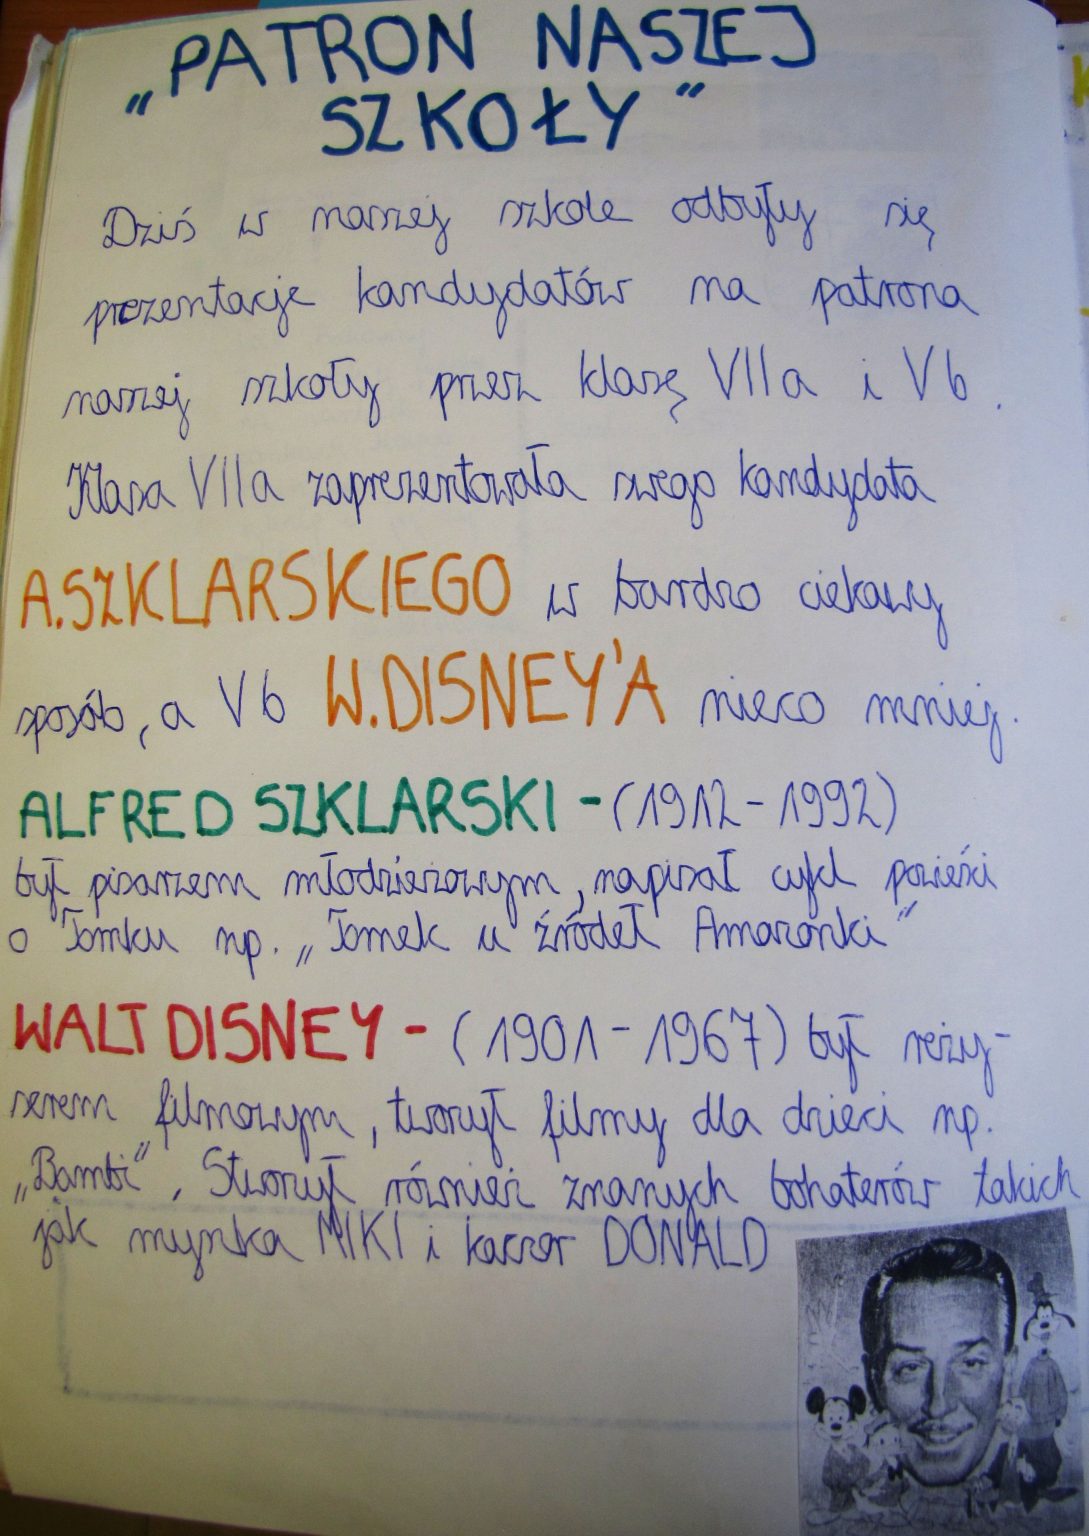 „PATRON NASZEJ
SZKOŁY”
Dziś w naszej szkole odbyły się
prezentacje kandydatów na patrona
naszej szkoły przez klasę VIIa i Vb.
Klasa VIIa zaprezentowała swego kandydata
A.SZKLARSKIEGO w bardzo ciekawy
sposób, a Vb W.DISNEY'A nieco mniej.
ALFRED SZKLARSKI - (1912 - 1992)
był pisarzem młodzieżowym, napisał cykl powieści
o Tomku np. „Tomek u źródeł Amazonki”
WALT DISNEY - (1901 - 1967) był reży-
serem filmowym, tworzył filmy dla dzieci np.
„Bambi”. Stworzył również znanych bohaterów takich
jak myszka MIKI i kaczor DONALD